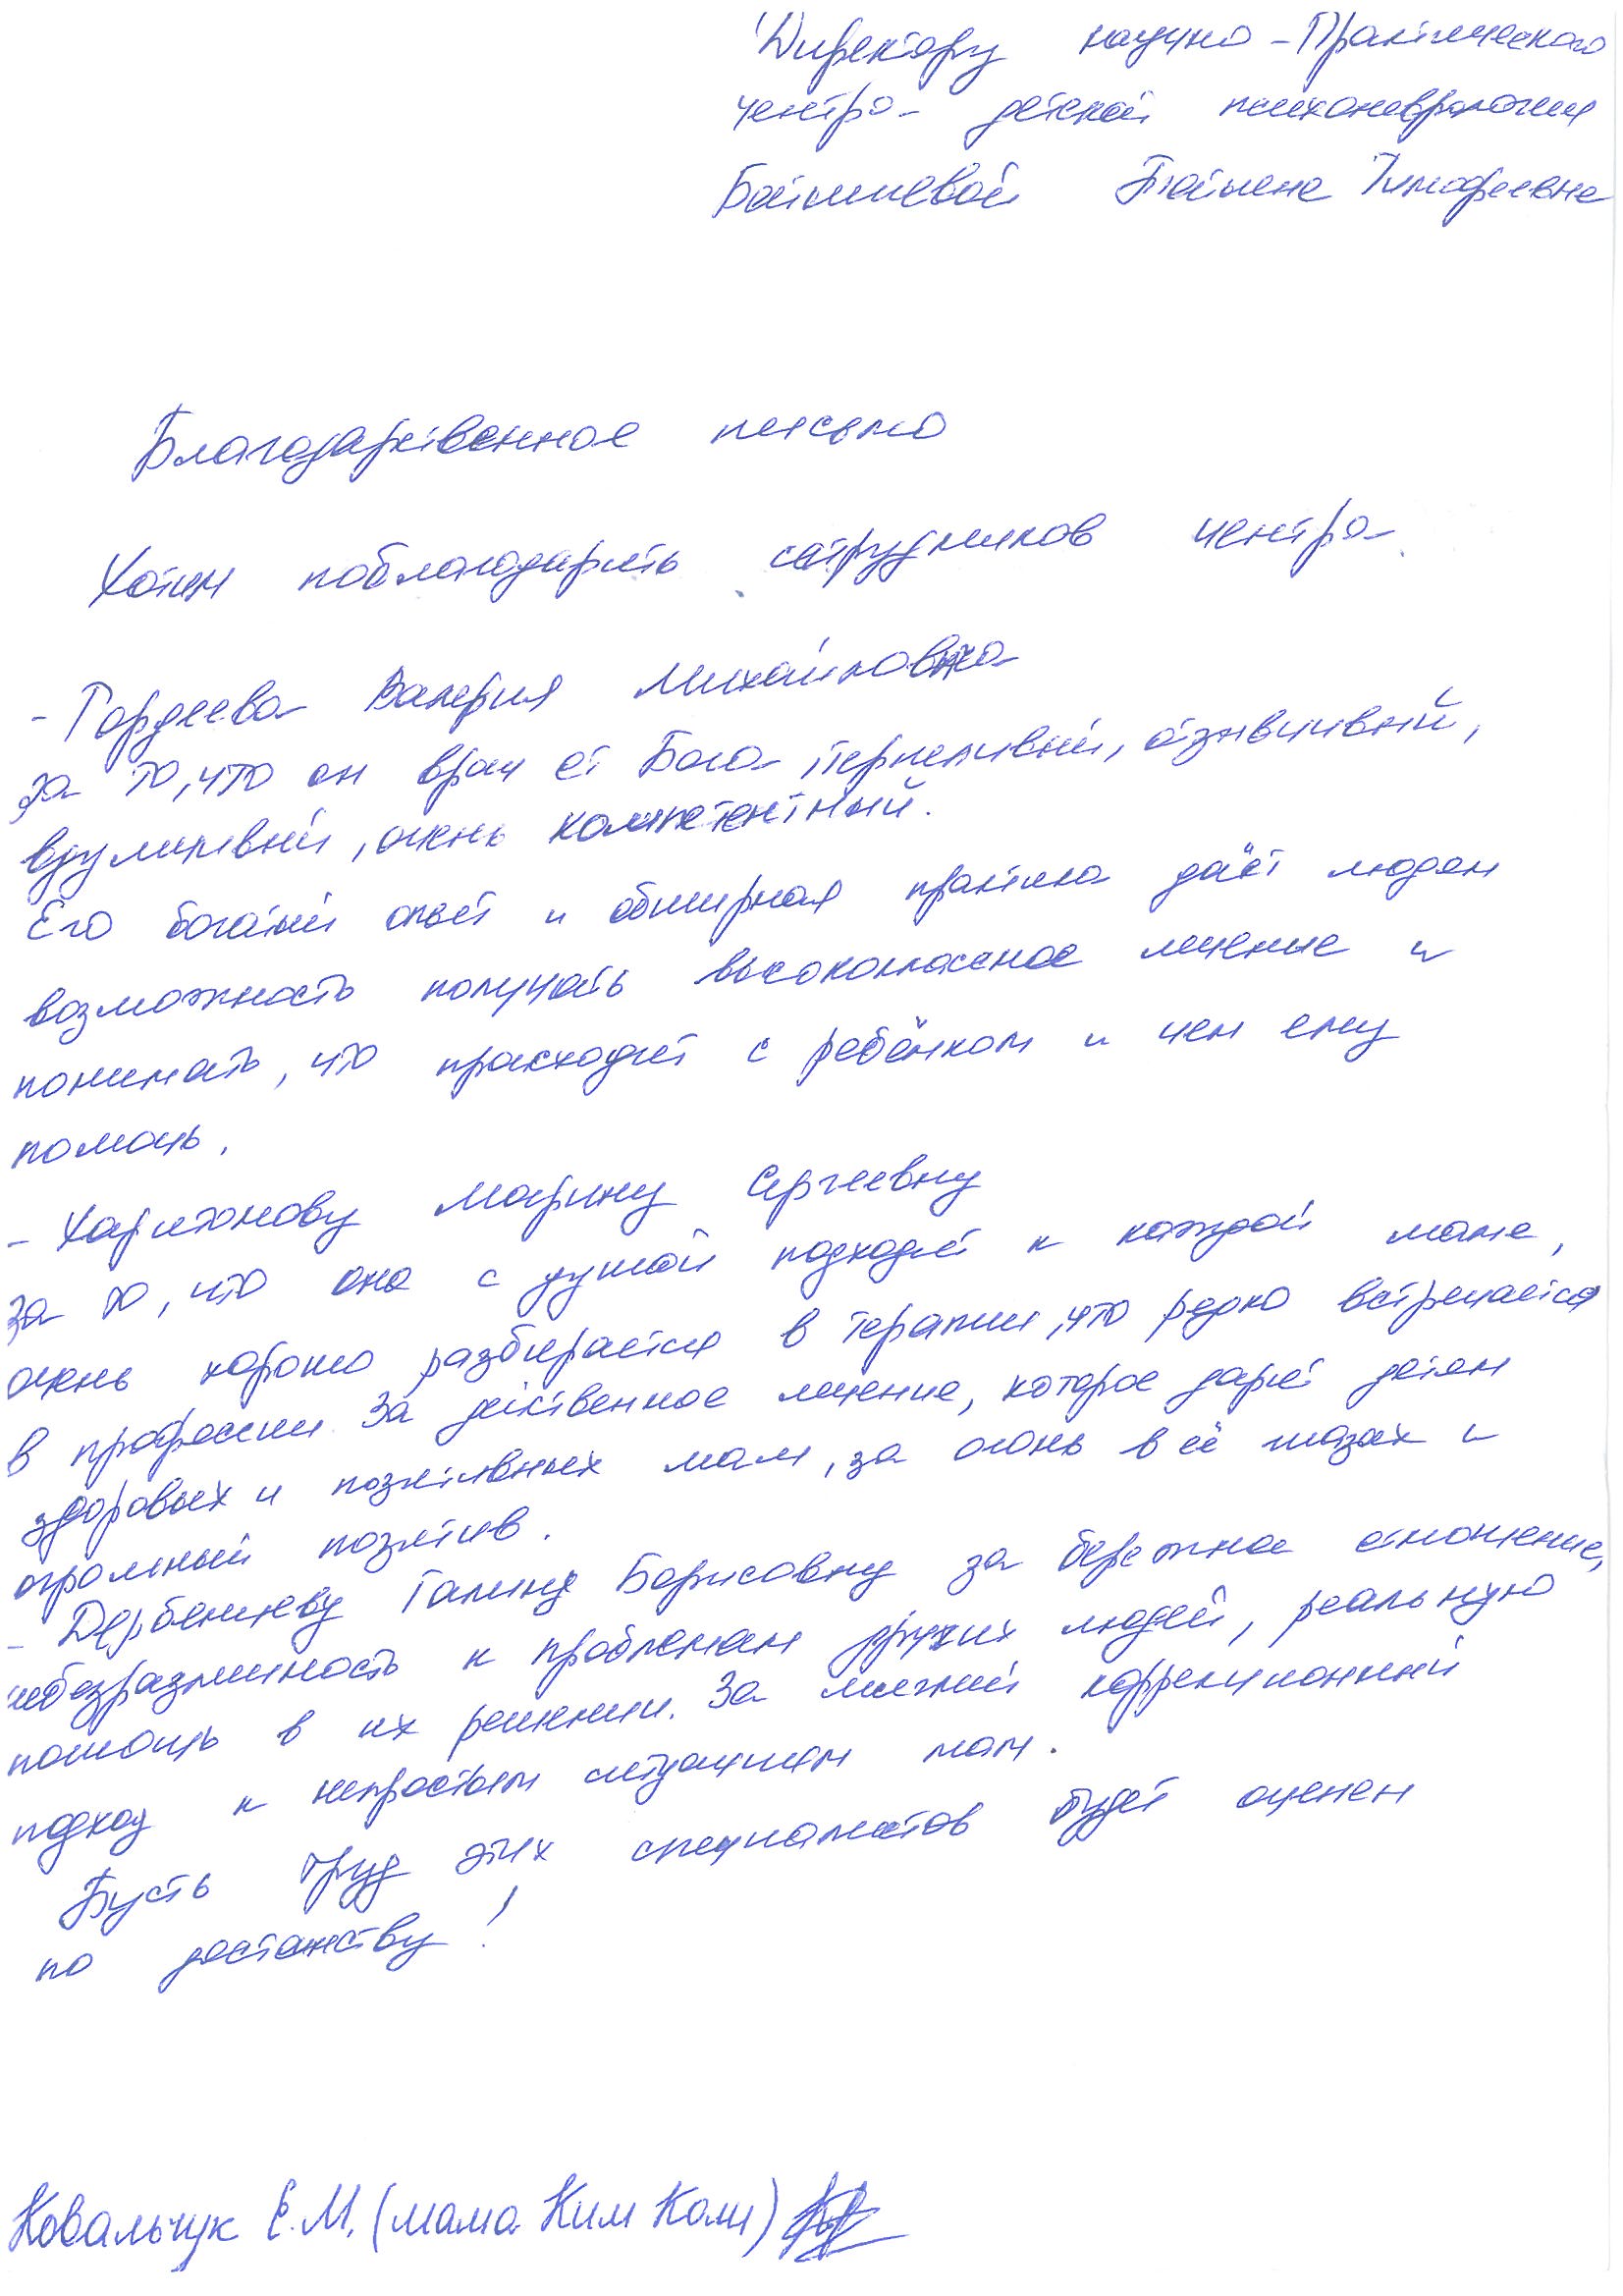 Директору научно-Практического
центра детской психоневрологии
Батышевой Татьяне Тимофеевне
Благодарственное письмо
Хотим поблагодарить сотрудников центра
- Гордеева Валерия Михайловича
за то, что он врач от Бога терпеливый, отзывчивый,
вдумчивый, очень компетентный.
Его богатый опыт и обширная практика даёт людям
возможность получать высококлассное лечение и
понимать, что происходит с ребёнком и чем ему
помочь.
- Харитонову Марину Сергеевну
за то, что она с душой подходит к каждой маме,
очень хорошо разбирается в терапии, что редко встречается
в профессии. За действенное лечение, которое дарит детям
здоровых и позитивных мам, за огонь в её глазах и
огромный позитив.
- Дербеневу Галину Борисовну за бережное отношение,
небезразличность к проблемам других людей, реальную
помощь в их решении. За мягкий коррекционный
подход к непростым ситуациям мам.
Пусть труд этих специалистов будет оценен
по достоинству!
Ковальчук Е.М. (мама Ким Коли)